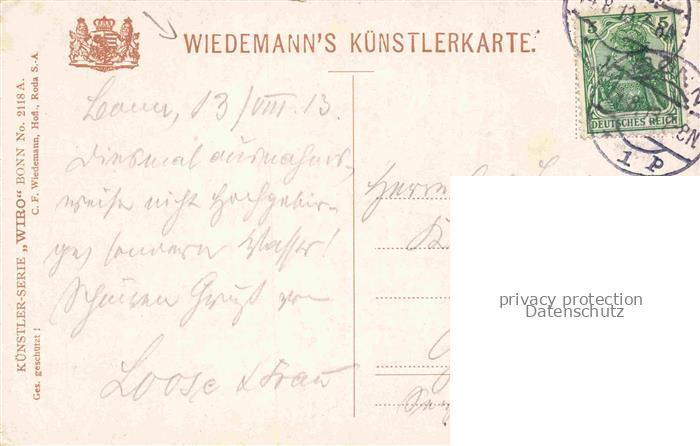 WIEDEMANN'S KÜNSTLERKARTE.
KÜNSTLER-SERIE „WIRO" BONN No. 2118 A.
C. F. Wiedemann, Hofl., Roda S.-A.
Ges. geschützt!
Bonn, 13/VIII. 13.
Diesmal ausnahms-
weise nicht Hochgebir-
ges sondern Wasser!
Schönen Gruß von
Loose & Frau
Herrn
5 5
DEUTSCHES REICH
1 p
privacy protection
Datenschutz